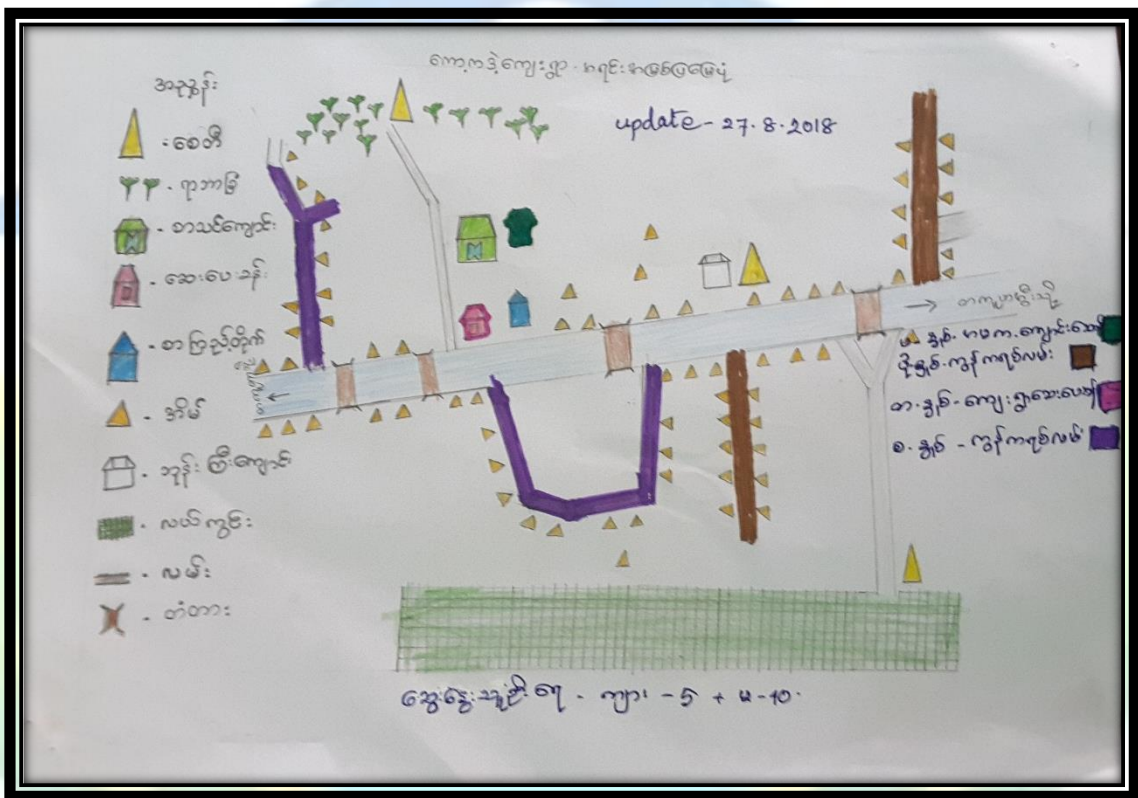 ကော့ကဒဲ့ကျေးရွာ - အရင်းအမြစ်ပြမြေပုံ
update - 27.8.2018
အညွှန်း
- စေတီ
- ရာဘာခြံ
- စာသင်ကျောင်း
- ဆေးပေးခန်း
- စာကြည့်တိုက်
- အိမ်
- ဘုန်းကြီးကျောင်း
- လယ်ကွင်း
- လမ်း
- တံတား
ပ-နှစ်-အမက-ကျောင်းဆောင်
ဒု-နှစ်-ကွန်ကရစ်လမ်း
တ-နှစ်-ကျေးရွာဆေးပေးခန်း
စ-နှစ်-ကွန်ကရစ်လမ်း
ဆွေးနွေးသူဦးရေ - ကျား - 5 + မ - 10